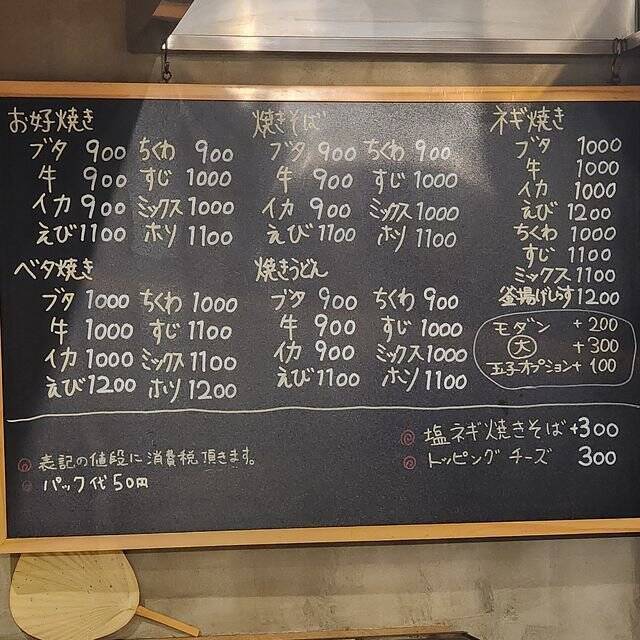 お好焼き
ブタ 900 ちくわ 900
牛 900 すじ 1000
イカ 900 ミックス 1000
えび 1100 ホソ 1100
ベタ焼き
ブタ 1000 ちくわ 1000
牛 1000 すじ 1100
イカ 1000 ミックス 1100
えび 1200 ホソ 1200
焼きそば
ブタ 900 ちくわ 900
牛 900 すじ 1000
イカ 900 ミックス 1000
えび 1100 ホソ 1100
焼きうどん
ブタ 900 ちくわ 900
牛 900 すじ 1000
イカ 900 ミックス 1000
えび 1100 ホソ 1100
ネギ焼き
ブタ 1000
牛 1000
イカ 1000
えび 1200
ちくわ 1000
すじ 1100
ミックス 1100
釜揚げしらす 1200
モダン +200
大 +300
玉子オプション+ 100
◎ 塩ネギ焼きそば+300
◎ トッピングチーズ 300
◎ 表記の値段に消費税頂きます。
◎ パック代50円